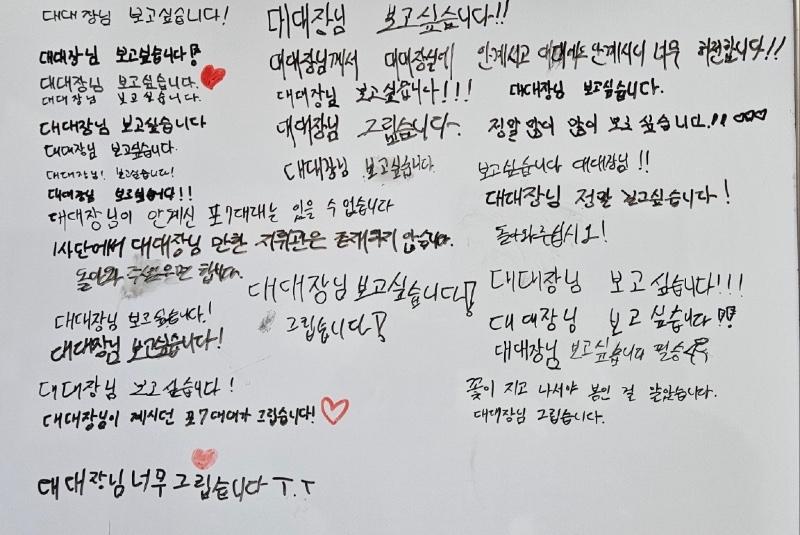 대대장님 보고싶습니다!
대대장님 보고싶습니다!
대대장님 보고싶습니다.
대대장님 보고싶습니다.
대대장님 보고싶습니다
대대장님 보고싶습니다.
대대장님! 보고싶습니다!
대대장님 보고싶습니다!!
대대장님이 안계신 포7대대는 있을 수 없습니다
1사단에서 대대장님 만한 지휘관은 존재하지 않습니다.
돌아와 주셨으면 합니다.
대대장님 보고싶습니다!
대대장님 보고싶습니다!
대대장님 보고싶습니다!
대대장님이 계시던 포7대대가 그립습니다!
대대장님 너무 그립습니다 T.T
대대장님 보고싶습니다!!
대대장님께서 대대장실에 안계시고 대대에도 안계시니 너무 허전합니다!!
대대장님 보고싶습니다!!!
대대장님 보고싶습니다.
대대장님 그립습니다.
정말 많이 많이 보고 싶습니다!! ♡♡♡
대대장님 보고싶습니다
보고싶습니다 대대장님!!
대대장님 정말 보고싶습니다!
돌아와주십시오!
대대장님 보고싶습니다!
그립습니다!
대대장님 보고싶습니다!!!
대대장님 보고싶습니다!!
대대장님 보고싶습니다 필승
꽃이 지고 나서야 봄인 걸 알았습니다.
대대장님 그립습니다.